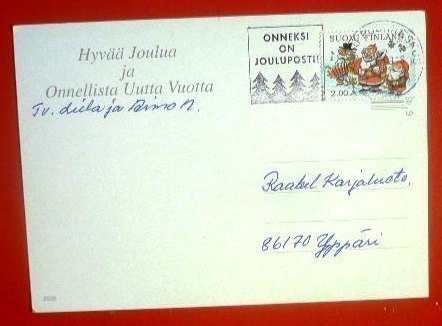 Hyvää Joulua
ja
Onnellista Uutta Vuotta
Tv. Leila ja Aimo N.
ONNEKSI
ON
JOULUPOSTI!
SUOMI FINLAND
2.00
Raakel Karjaluoto,
86170 Yppäri